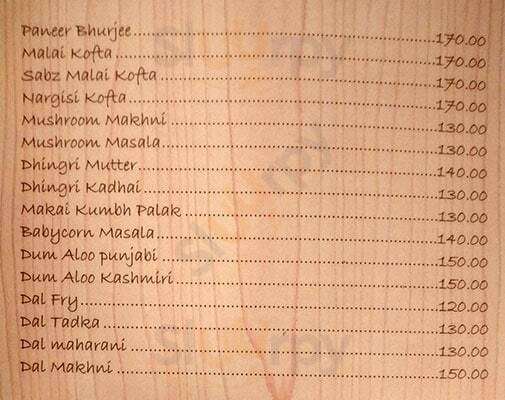 Paneer Bhurjee.............................................................170.00
Malai Kofta.............................................................170.00
Sabz Malai Kofta.............................................................170.00
Nargisi Kofta.............................................................170.00
Mushroom Makhni.............................................................130.00
Mushroom Masala.............................................................130.00
Dhingri Mutter.............................................................140.00
Dhingri Kadhai.............................................................130.00
Makai Kumbh Palak.............................................................130.00
Babycorn Masala.............................................................140.00
Dum Aloo punjabi.............................................................150.00
Dum Aloo Kashmiri.............................................................150.00
Dal Fry.............................................................120.00
Dal Tadka.............................................................130.00
Dal maharani.............................................................130.00
Dal Makhni.............................................................150.00
sluurpy
sluurpy
sluurpy